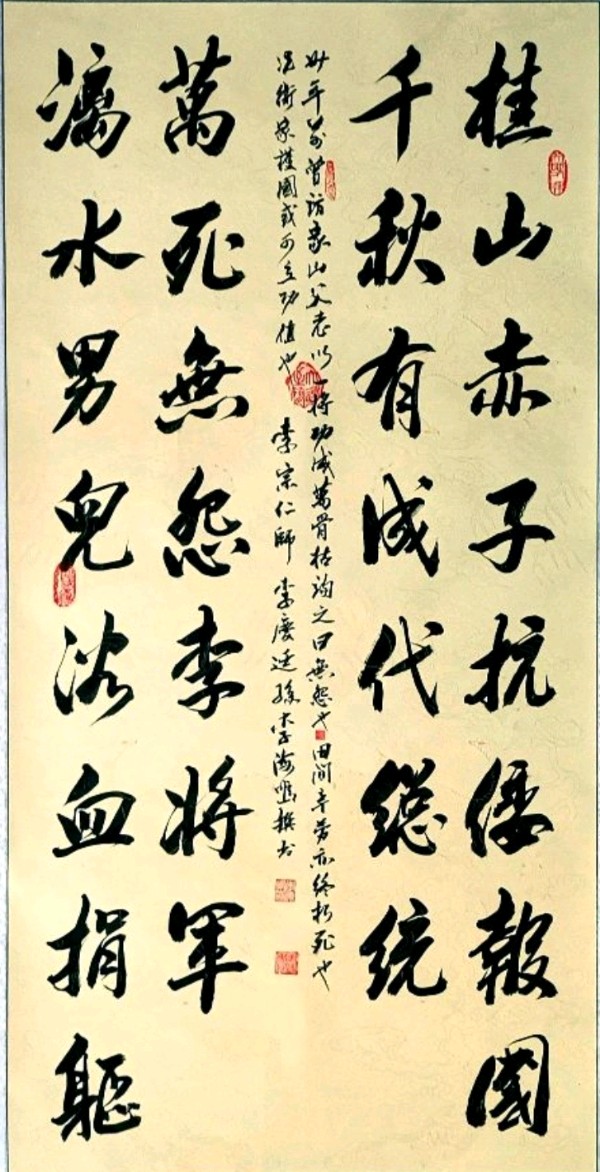 桂山赤子抗倭報國
千秋有成代總統
年前曾訪象山父老以一將功成萬骨枯詢之曰無怨也田間辛勞亦終死也
衛家護國或可立功值也 李宗仁師 李慶廷孫李海撰書
萬死無怨李將軍
漓水男兒浴血捐軀